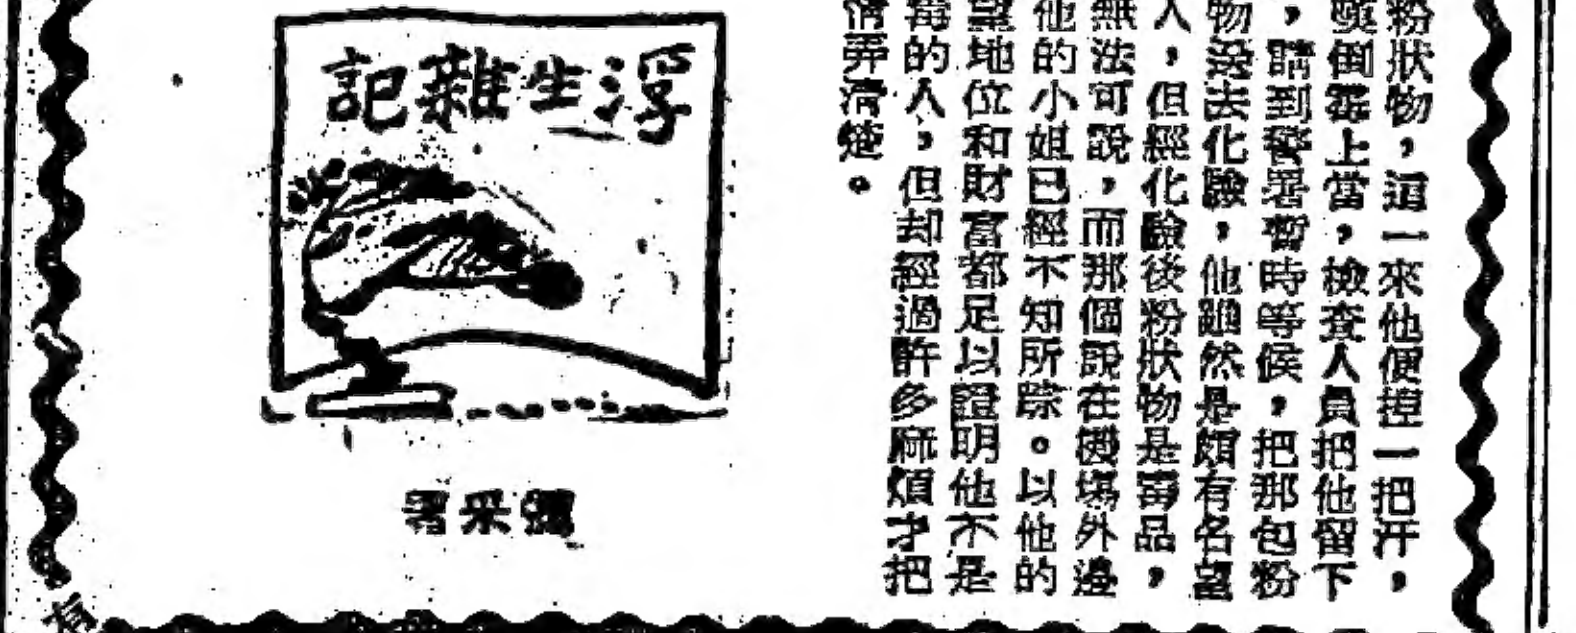 粉狀物，這一來他便揑一把汗，
嘆倒霉上當，檢查人員把他留下
，請到警署暫時等候，把那包粉
物送去化驗，他雖然是頗有名望
人，但經化驗後粉狀物是毒品，
無法可說，而那個說在機場外邊
他的小姐已經不知所踪。以他的
望地位和財富都足以證明他不是
毒的人，但却經過許多麻煩才把
情弄清楚。
浮生雜記
有